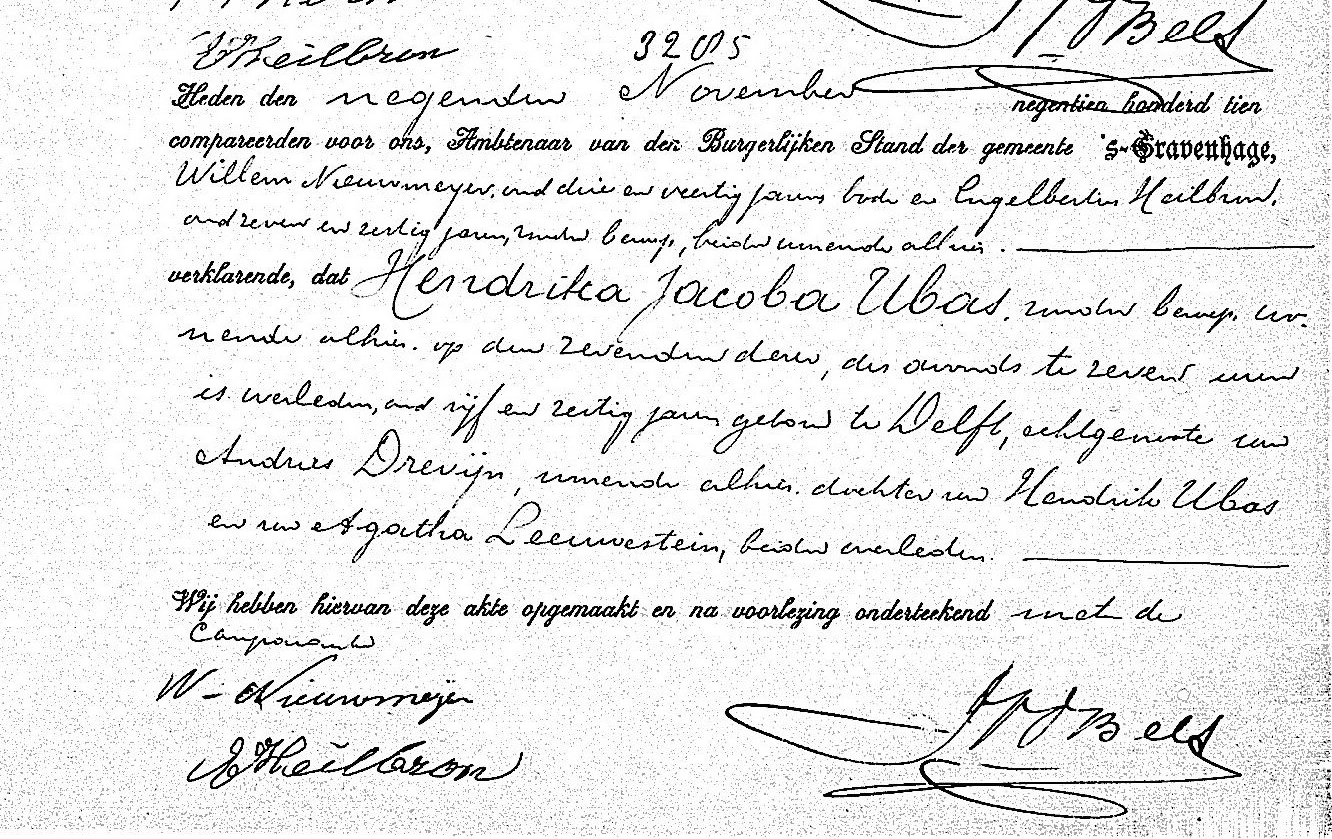 Bels
Heilbron 3285
Heden den negenden November negentien honderd tien
compareerden voor ons, Ambtenaar van den Burgerlijken Stand der gemeente 's-Gravenhage,
Willem Nieuwmeyer, oud drie en veertig jaren, bode en Engelbertus Heilbron,
oud zeven en zestig jaren, zonder beroep, beiden wonende alhier.
verklarende, dat Hendrika Jacoba Ubas, zonder beroep, wo-
nende alhier, op den zevenden dezer, des avonds te zeven uren
is overleden, oud vijf en zestig jaren, geboren te Delft, echtgenoote van
Andries Drevijn, wonende alhier, dochter van Hendrik Ubas
en van Agatha Leeuwestein, beiden overleden.
Wij hebben hiervan deze akte opgemaakt en na voorlezing onderteekend met de
Comparanten
W. Nieuwmeijer Bels
Heilbron